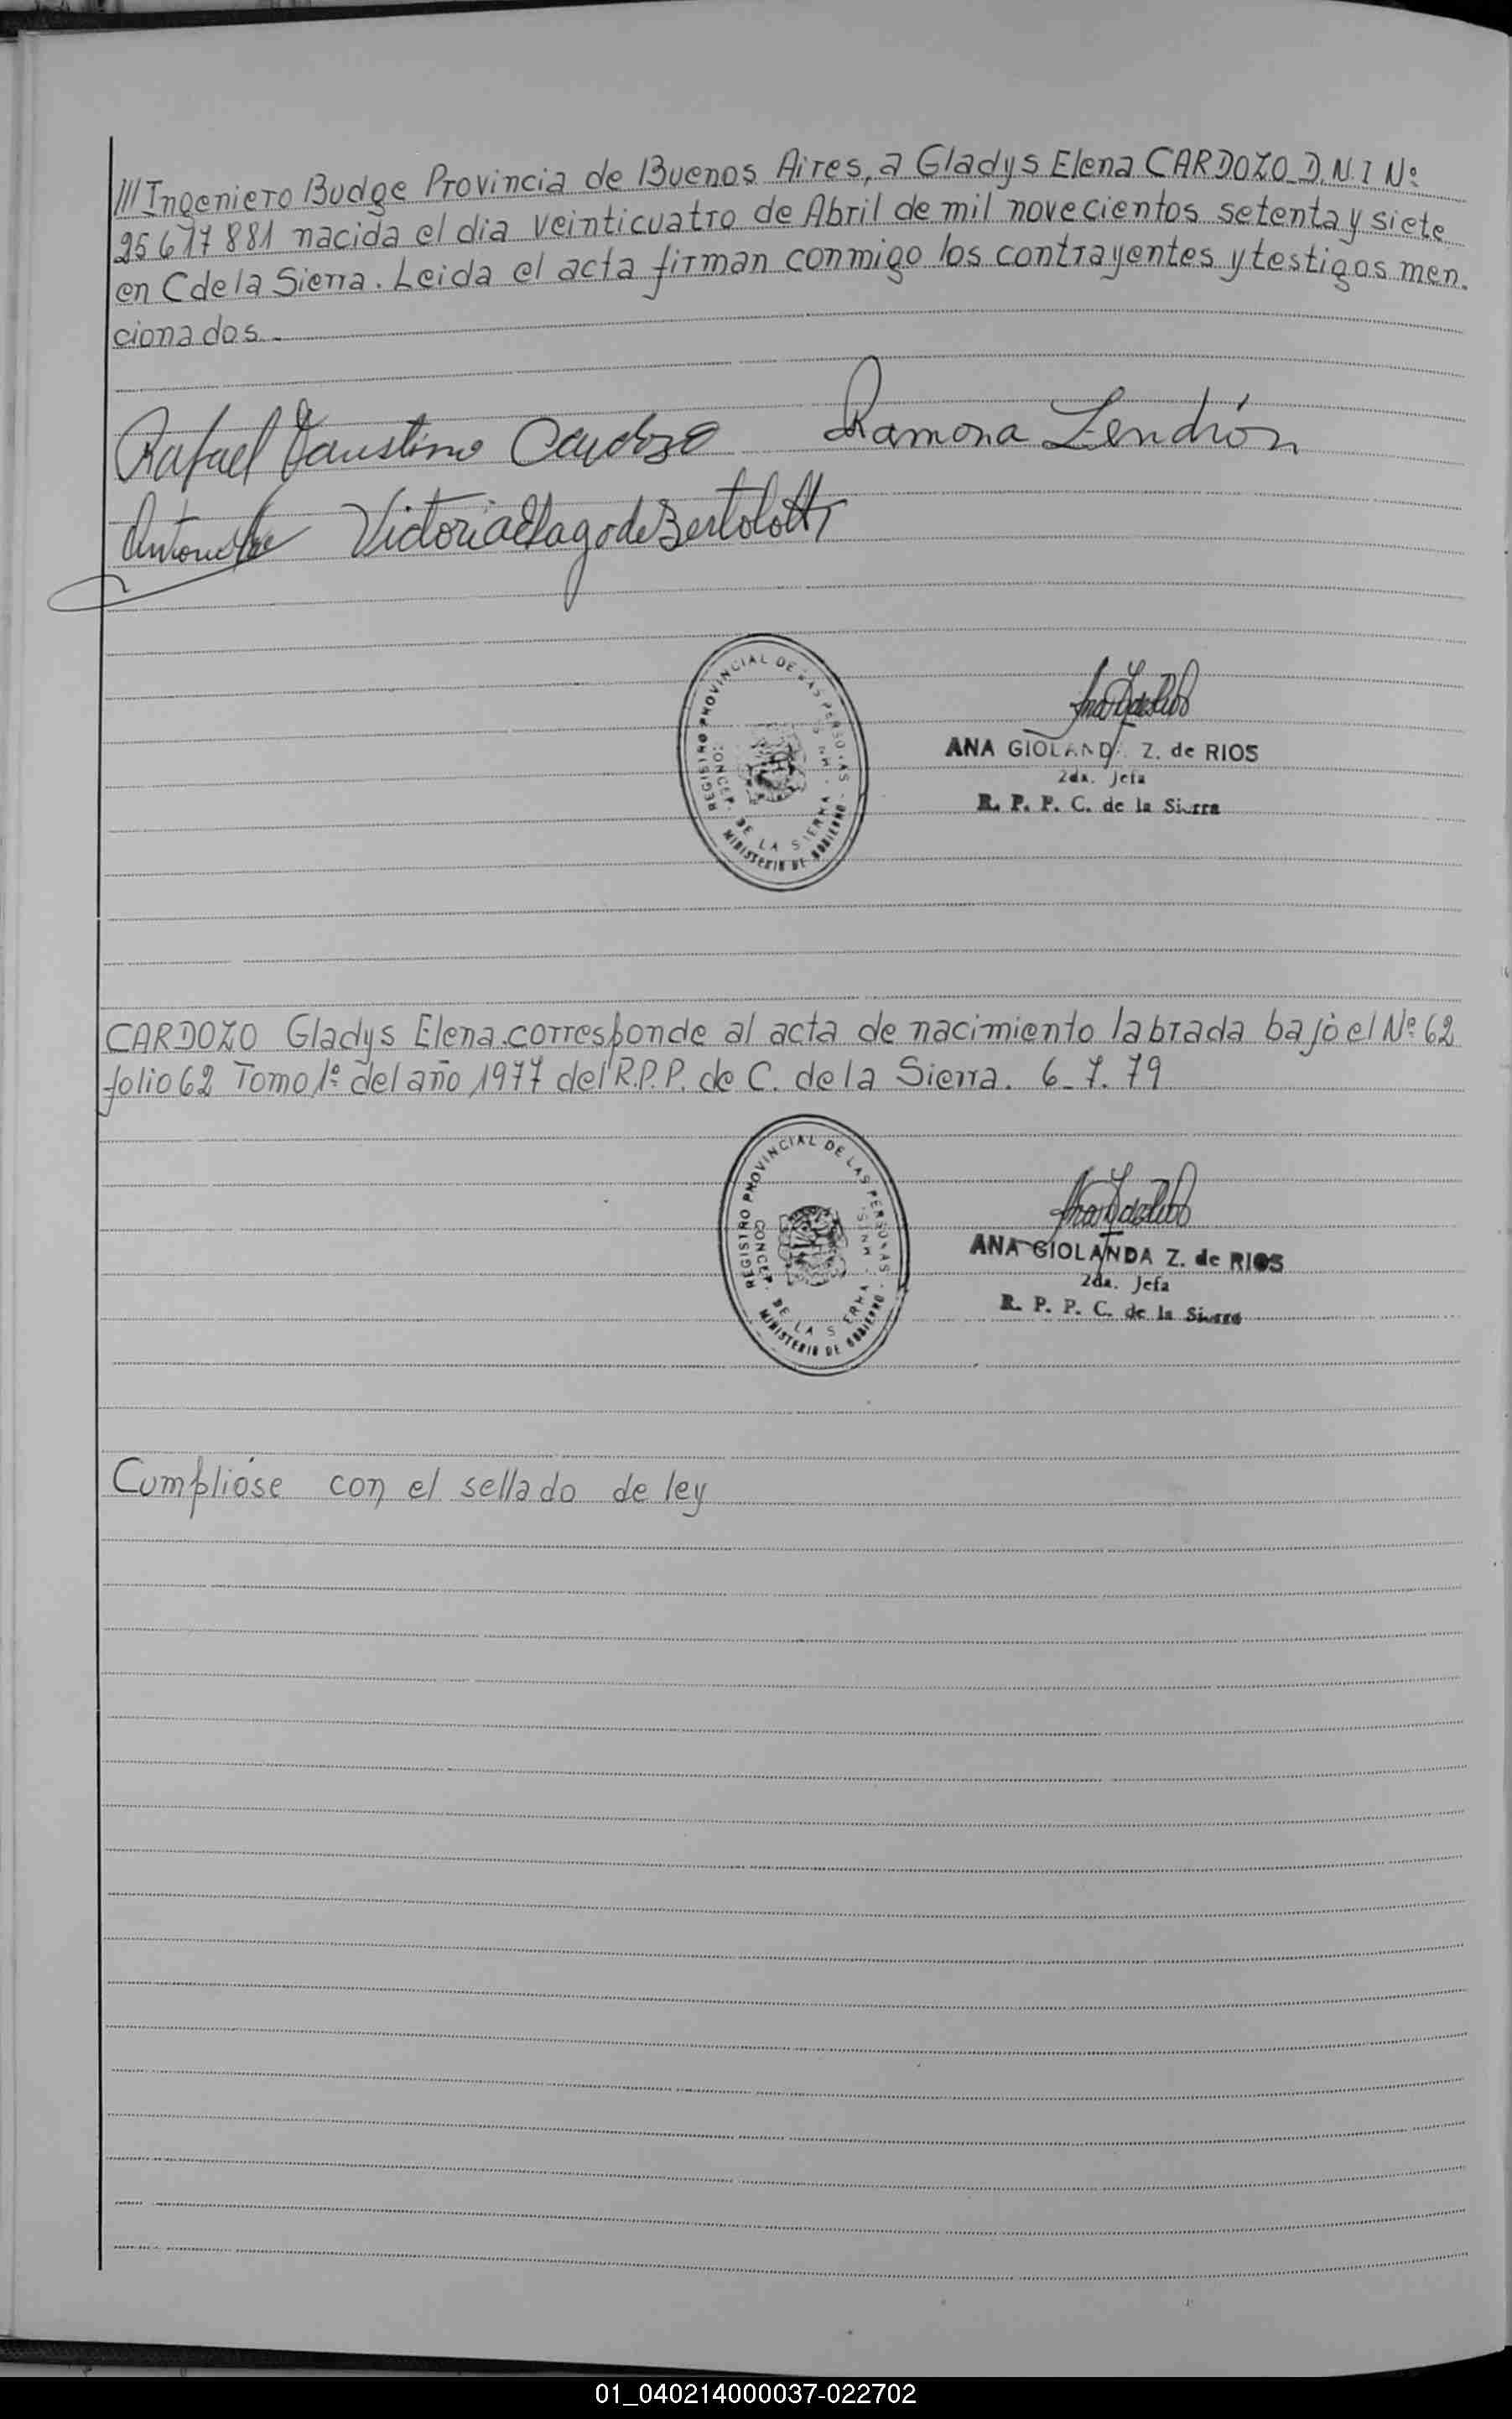 /// Ingeniero Budge Provincia de Buenos Aires, a Gladys Elena CARDOZO D.N.I Nº
25 677 881 nacida el dia veinticuatro de Abril de mil novecientos setenta y siete
en C de la Sierra. Leida el acta firman conmigo los contrayentes y testigos men-
cionados.-
Rafael Faustino Cardozo Ramona Lendrón
Victoria E Lago de Bertolotti
REGISTRO PROVINCIAL DE LAS PERSONAS - MNES
CONCEP. DE LA SIERRA
MINISTERIO DE GOBIERNO
ANA GIOLANDA Z. de RIOS
2da. Jefa
R. P. P. C. de la Sierra
CARDOZO Gladys Elena.corresponde al acta de nacimiento labrada bajo el Nº 62
folio 62 Tomo 1º del año 1977 del R.P.P. de C. de la Sierra. 6-7.79
REGISTRO PROVINCIAL DE LAS PERSONAS - MNES
CONCEP. DE LA SIERRA
MINISTERIO DE GOBIERNO
ANA GIOLANDA Z. de RIOS
2da. Jefa
R. P. P. C. de la Sierra
Cumplióse con el sellado de ley
01_040214000037-022702